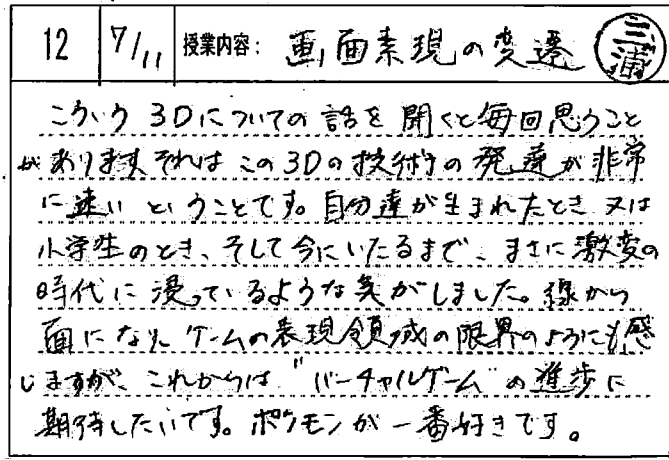 12 7/11 授業内容: 画面表現の変遷 三浦
こういう 3Dについての話を聞くと毎回思うこと
があります。それはこの3Dの技術の発達が非常
に速いということです。自分達が生まれたとき又は
小学生のとき、そして今にいたるまで、まさに激変の
時代に浸っているような気がしました。線から
面になり、ゲームの表現領域の限界のようにも感
じますが、これからは"バーチャルゲーム"の進歩に
期待したいです。ポケモンが一番好きです。